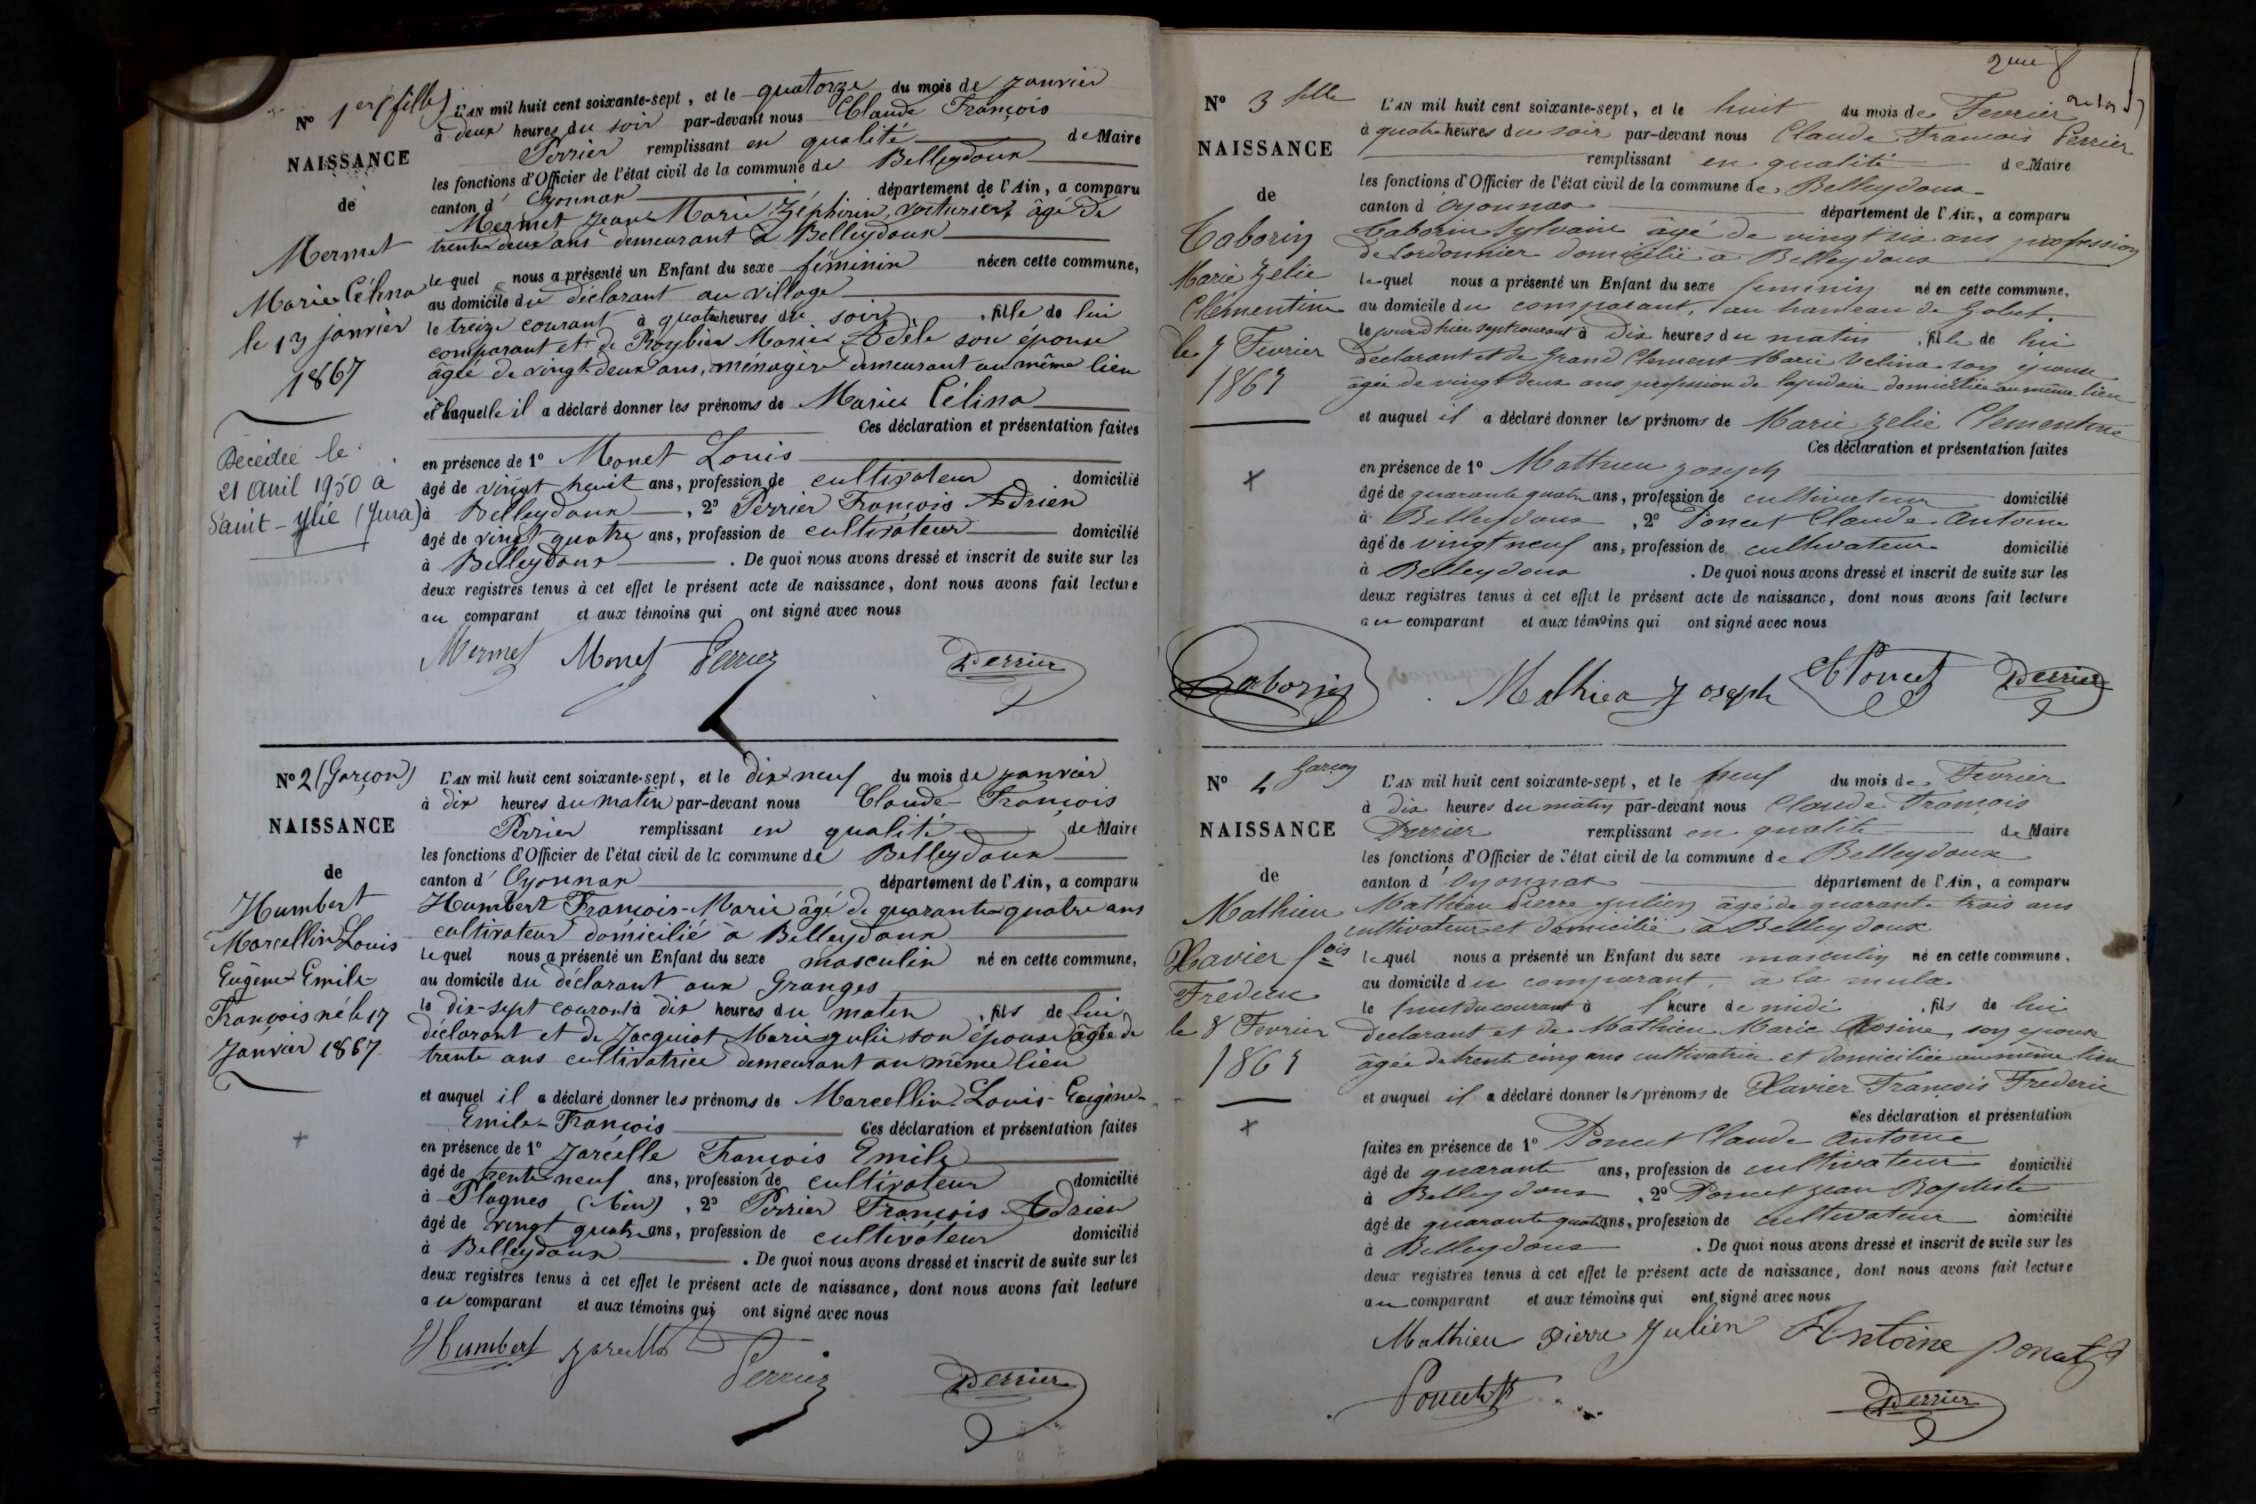 N° 1er (fille)
NAISSANCE
de
Mermet
Marie Célina
le 13 janvier
1867
Décédée le
21 avril 1950 à
Saint-Ylie (Jura)
L'AN mil huit cent soixante-sept, et le quatorze du mois de janvier
à deux heures du soir par-devant nous Claude François
Perrier remplissant en qualité de Maire
les fonctions d'Officier de l'état civil de la commune de Belleydoux
canton d'Oyonnax département de l'Ain, a comparu
Mermet Jean Marie Zéphirin, voiturier, âgé de
trente deux ans demeurant à Belleydoux
lequel nous a présenté un Enfant du sexe féminin née en cette commune,
au domicile du déclarant au village
le treize courant à quatre heures du soir, fille de lui
comparant et de Marie Adèle son épouse
âgée de vingt deux ans, ménagère demeurant au même lieu
et à laquelle il a déclaré donner les prénoms de Marie Célina
Ces déclaration et présentation faites
en présence de 1° Monet Louis
âgé de vingt huit ans, profession de cultivateur domicilié
à Belleydoux, 2° Perrier François Adrien
âgé de vingt quatre ans, profession de cultivateur domicilié
à Belleydoux. De quoi nous avons dressé et inscrit de suite sur les
deux registres tenus à cet effet le présent acte de naissance, dont nous avons fait lecture
au comparant et aux témoins qui ont signé avec nous
Mermet Monet Perrier Perrier
N° 2 (Garçon)
NAISSANCE
de
Humbert
Marcellin Louis
Eugène Emile
François né le 17
Janvier 1867
L'AN mil huit cent soixante-sept, et le dix neuf du mois de janvier
à dix heures du matin par-devant nous Claude François
Perrier remplissant en qualité de Maire
les fonctions d'Officier de l'état civil de la commune de Belleydoux
canton d'Oyonnax département de l'Ain, a comparu
Humbert François-Marie âgé de quarante quatre ans
cultivateur domicilié à Belleydoux
lequel nous a présenté un Enfant du sexe masculin né en cette commune,
au domicile du déclarant aux Granges
le dix-sept courant à dix heures du matin, fils de lui
déclarant et de Jacquiot Marie Julie son épouse âgée de
trente ans cultivatrice demeurant au même lieu
et auquel il a déclaré donner les prénoms de Marcellin Louis-Eugène-
Emile-François Ces déclaration et présentation faites
en présence de 1° Jarcelle François Emile
âgé de trente neuf ans, profession de cultivateur domicilié
à Plagnes (Ain), 2° Perrier François Adrien
âgé de vingt quatre ans, profession de cultivateur domicilié
à Belleydoux. De quoi nous avons dressé et inscrit de suite sur les
deux registres tenus à cet effet le présent acte de naissance, dont nous avons fait lecture
au comparant et aux témoins qui ont signé avec nous
Humbert Jarcelle Perrier Perrier
2me
N° 3 fille
NAISSANCE
de
Taborin
Marie Zelie
Clementine
le 7 Fevrier
1867
L'AN mil huit cent soixante-sept, et le huit du mois de Fevrier
à quatre heures du soir par-devant nous Claude Francois Perrier
remplissant en qualité de Maire
les fonctions d'Officier de l'état civil de la commune de Belleydoux
canton d'Oyonnax département de l'Ain, a comparu
Taborin Sylvain âgé de vingt six ans profession
de Cordonnier domicilié à Belleydoux
lequel nous a présenté un Enfant du sexe feminin né en cette commune,
au domicile du comparant, au hameau de Gobet.
le jour d'hier sept courant à Dix heures du matin, fille de lui
declarant et de Grand Clement Marie Velina son épouse
âgée de vingt deux ans profession de lapidaire domiciliée au même lieu
et auquel il a déclaré donner les prénoms de Marie Zelie Clementine
Ces déclaration et présentation faites
en présence de 1° Mathieu Joseph
âgé de quarante quatre ans, profession de cultivateur domicilié
à Belleydoux, 2° Poncet Claude Antoine
âgé de vingt neuf ans, profession de cultivateur domicilié
à Belleydoux. De quoi nous avons dressé et inscrit de suite sur les
deux registres tenus à cet effet le présent acte de naissance, dont nous avons fait lecture
au comparant et aux témoins qui ont signé avec nous
Taborin Mathieu Joseph Poncet Perrier
N° 4 Garçon
NAISSANCE
de
Mathieu
Xavier fçois
Frederic
le 8 Fevrier
1867
L'AN mil huit cent soixante-sept, et le neuf du mois de Fevrier
à dix heures du matin par-devant nous Claude François
Perrier remplissant en qualité de Maire
les fonctions d'Officier de l'état civil de la commune de Belleydoux
canton d'Oyonnax département de l'Ain, a comparu
Mathieu Pierre Julien âgé de quarante trois ans
cultivateur et domicilié à Belleydoux
lequel nous a présenté un Enfant du sexe masculin né en cette commune,
au domicile du comparant, à la mula
le huit du courant à l'heure de midi, fils de lui
declarant et de Mathieu Marie Rosine son epouse
âgée de trente cinq ans cultivatrice et domiciliée au même lieu
et auquel il a déclaré donner les prénoms de Xavier François Frederic
Ces déclaration et présentation
faites en présence de 1° Poncet Claude Antoine
âgé de quarante ans, profession de cultivateur domicilié
à Belleydoux, 2° Poncet Jean Baptiste
âgé de quarante quatre ans, profession de cultivateur domicilié
à Belleydoux. De quoi nous avons dressé et inscrit de suite sur les
deux registres tenus à cet effet le présent acte de naissance, dont nous avons fait lecture
au comparant et aux témoins qui ont signé avec nous
Mathieu Pierre Julien Antoine Poncet
Poncet Perrier